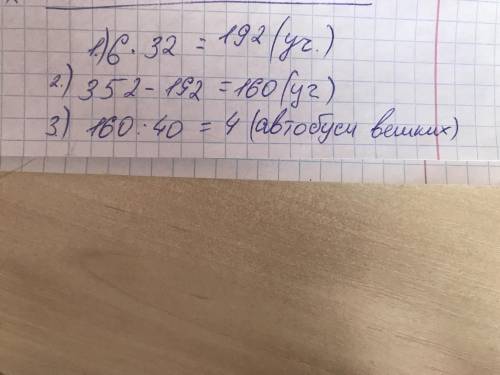 1.) 6 · 32 = 192 (уч.)
2.) 352 - 192 = 160 (уч)
3) 160 : 40 = 4 (автобуси великих)